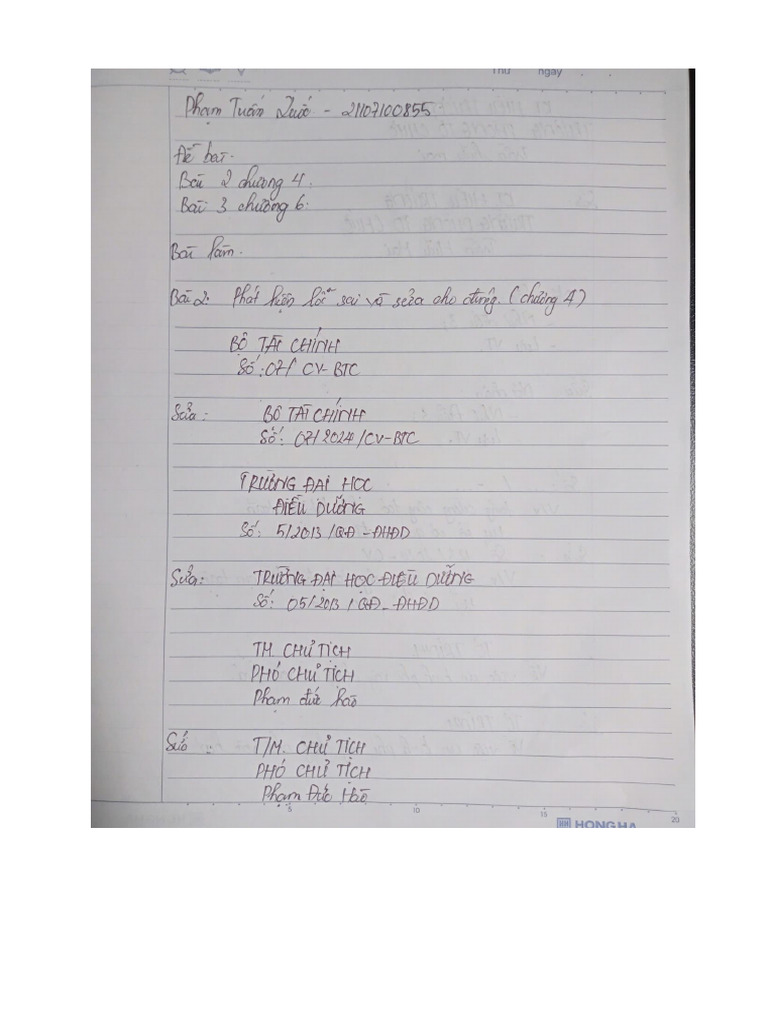 Thứ ngày
Phạm Tuấn - 21107100855
Đề bài.
Bài 2 chương 4.
Bài 3 chương 6:
Bài làm.
Bài 2: Phát hiện lỗi sai và sửa cho đúng. (chương 4)
BỘ TÀI CHÍNH
Số: 07/ CV-BTC
Sửa: BỘ TÀI CHÍNH
Số: 07/2024/CV-BTC
TRƯỜNG ĐẠI HỌC
ĐIỀU DƯỠNG
Số: 5/2013/QĐ-ĐHĐD
Sửa: TRƯỜNG ĐẠI HỌC ĐIỀU DƯỠNG
Số: 05/2013/QĐ-ĐHĐD
TM. CHỦ TỊCH
PHÓ CHỦ TỊCH
Phạm đức hào
Sửa: T/M. CHỦ TỊCH
PHÓ CHỦ TỊCH
Phạm Đức Hào
5 10 15 20
HONG HA